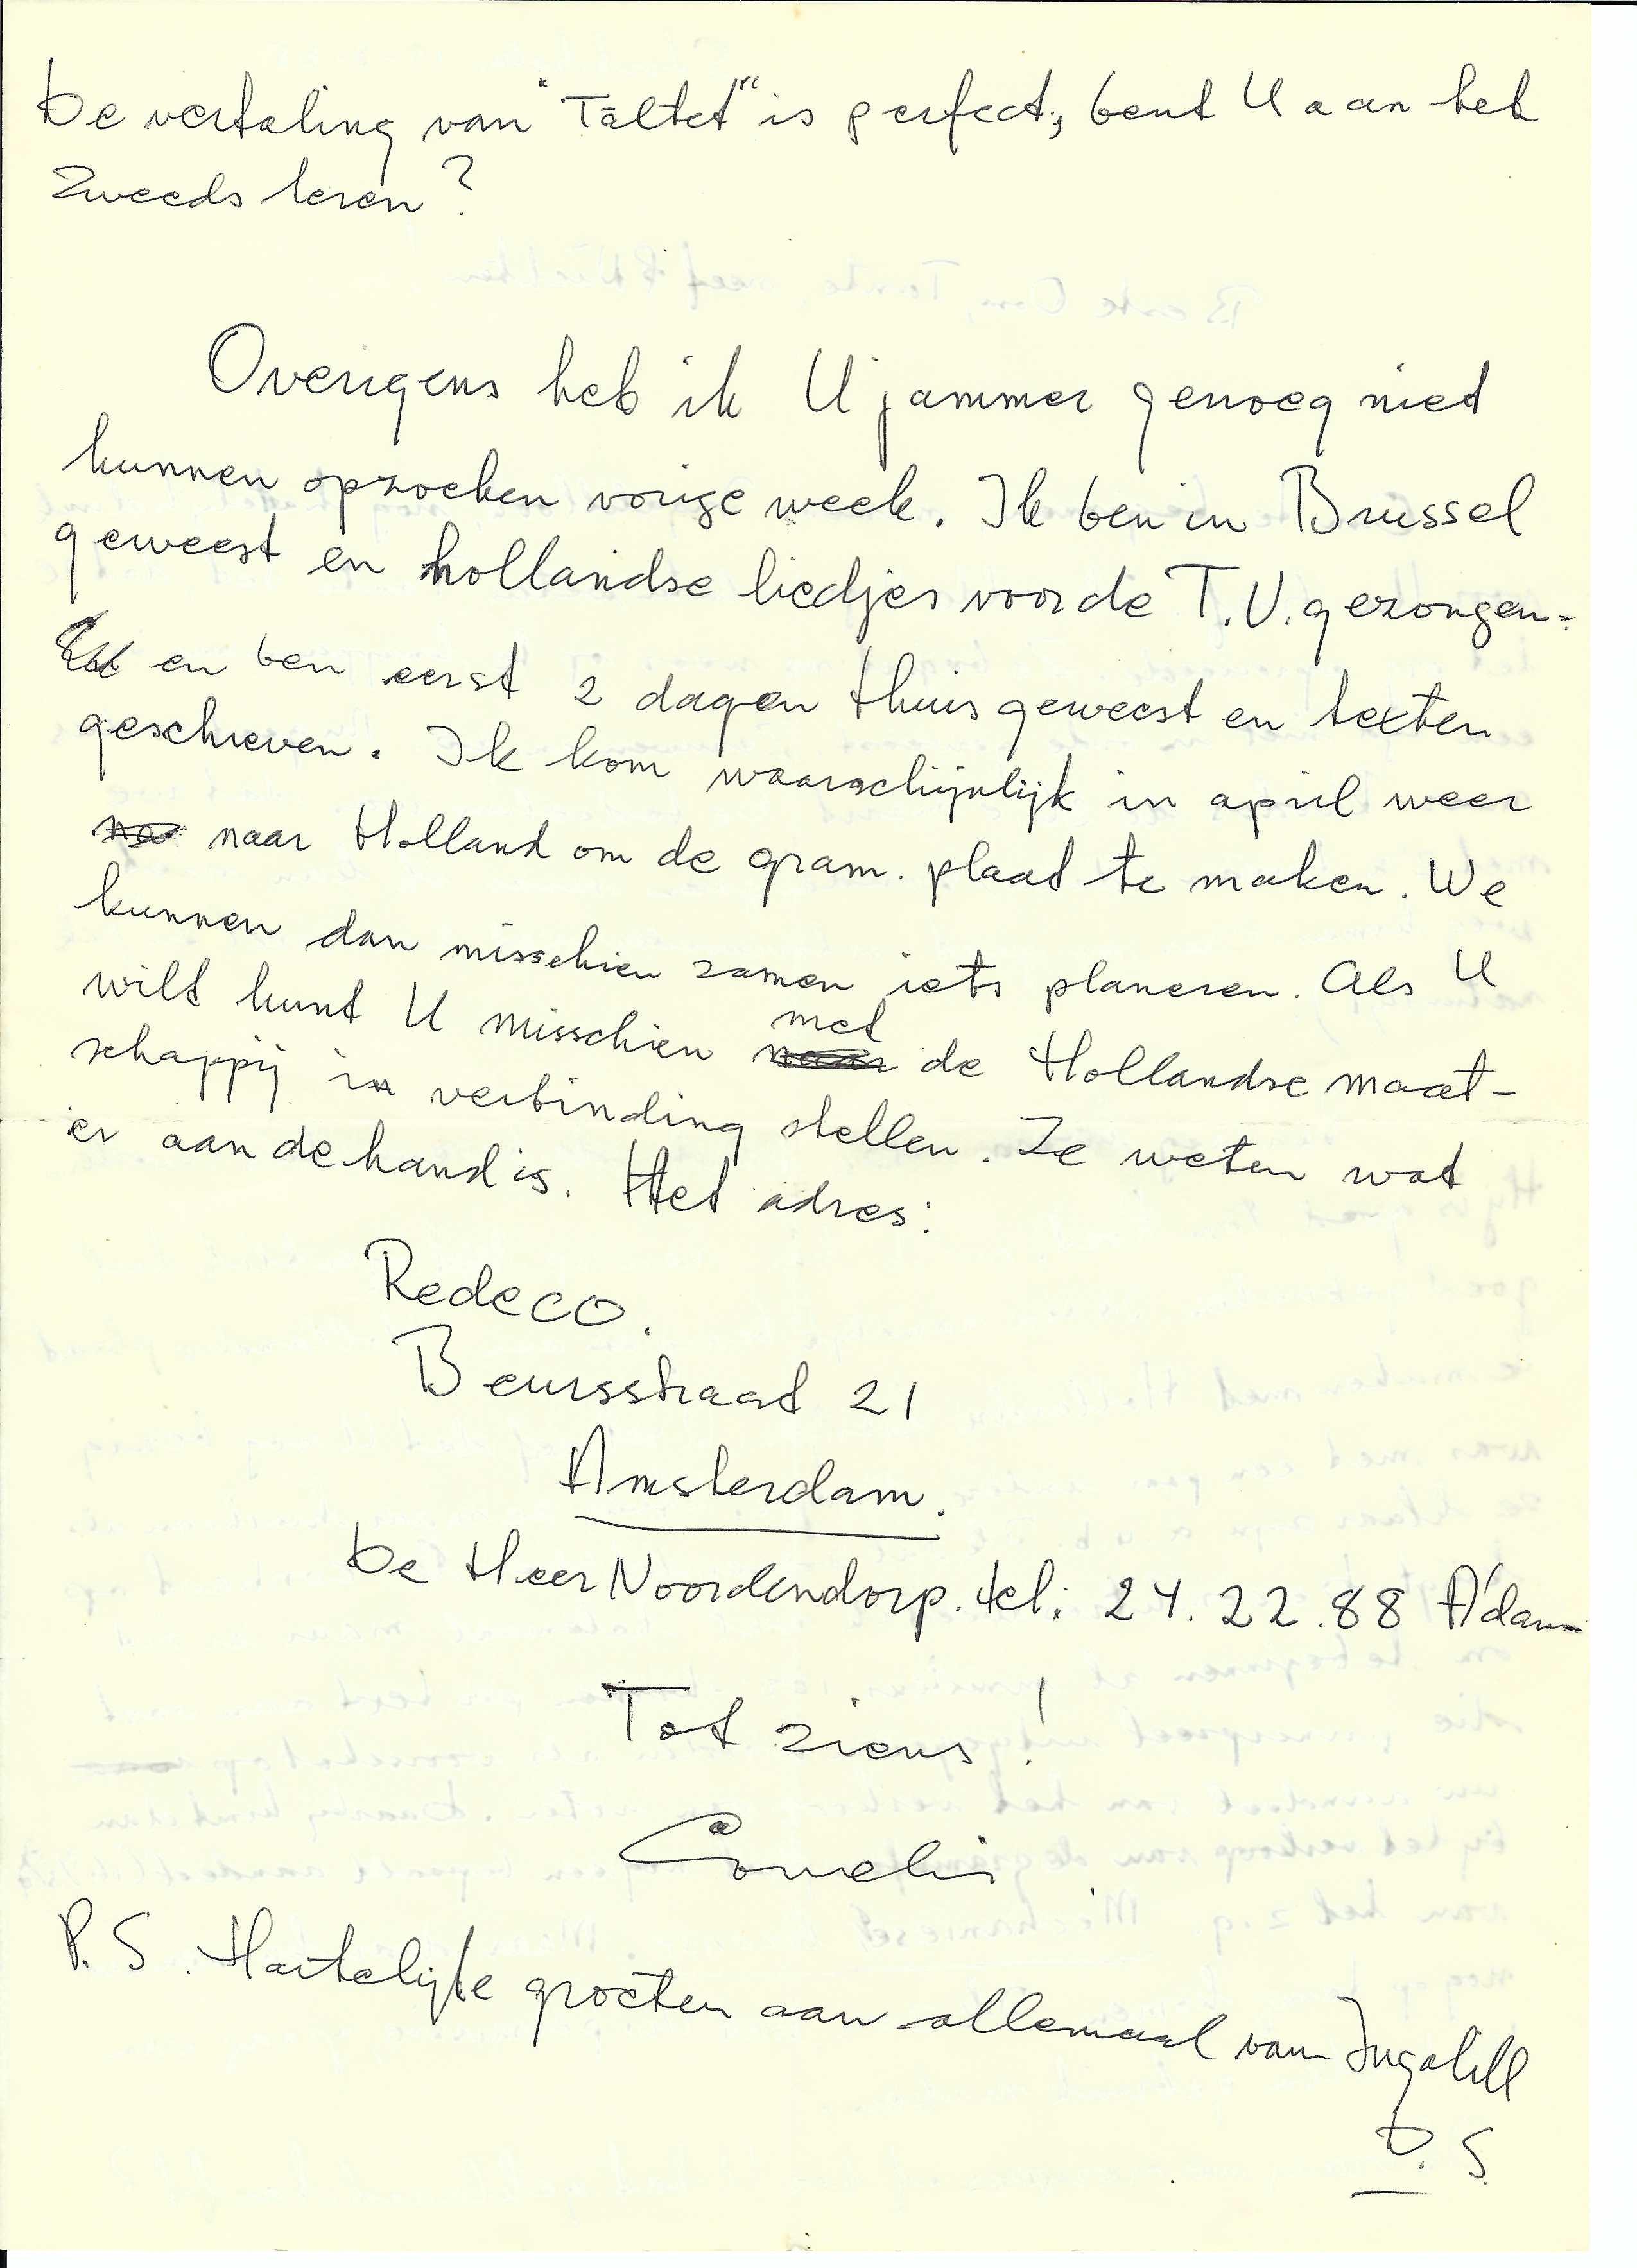 De vertaling van "Tältet" is perfect; bent U aan het
zweeds leren?
Overigens heb ik U jammer genoeg niet
kunnen opzoeken vorige week. Ik ben in Brussel
geweest en hollandse liedjes voor de T.V. gezongen-
en ben eerst 2 dagen thuis geweest en texten
geschreven. Ik kom waarschijnlijk in april weer
naar Holland om de gram. plaat te maken. We
kunnen dan misschien samen iets planeren. Als U
wilt kunt U misschien met de Hollandse maat-
schappij in verbinding stellen. Ze weten wat
er aan de hand is. Het adres:
Redeco.
Beursstraat 21
Amsterdam.
De Heer Noordendorp. tel: 24.22.88 A'dam
Tot ziens!
Cornelis
P.S. Hartelijke groeten aan allemaal van Ingalill
D.S.